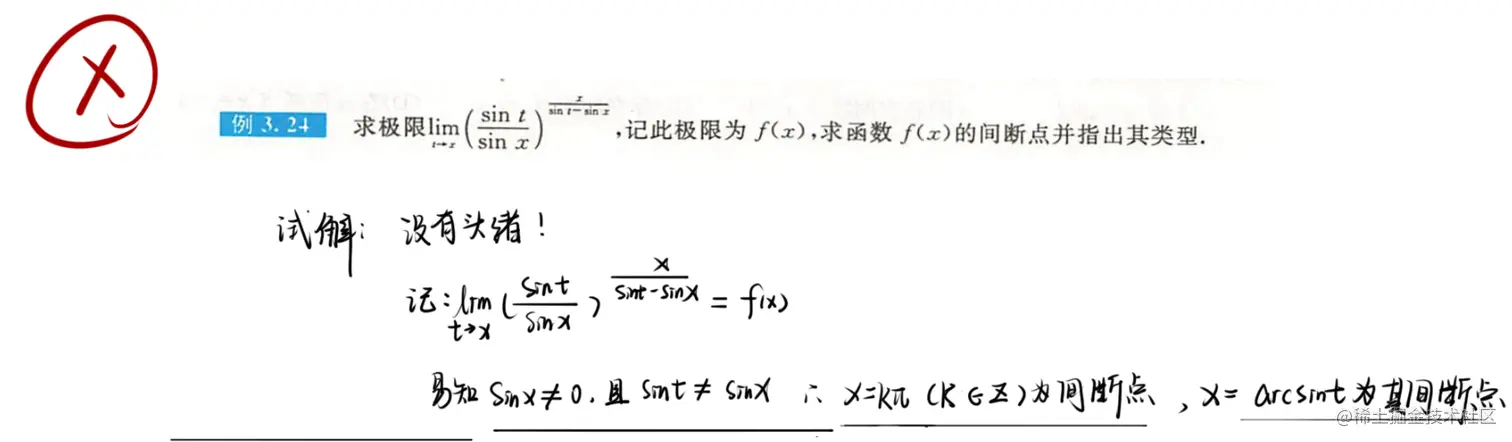 例 3.24 求极限lim t→x (sin t / sin x)^(x / (sin t − sin x)),记此极限为 f(x),求函数 f(x)的间断点并指出其类型.
试解: 没有头绪!
记: lim t→x (sint / sinx)^(x / (sint-sinx)) = f(x)
易知 sinx≠0. 且 sint≠sinx ∴ x=kπ (k∈Z)为间断点, x= arcsint为其间断点
@稀土掘金技术社区